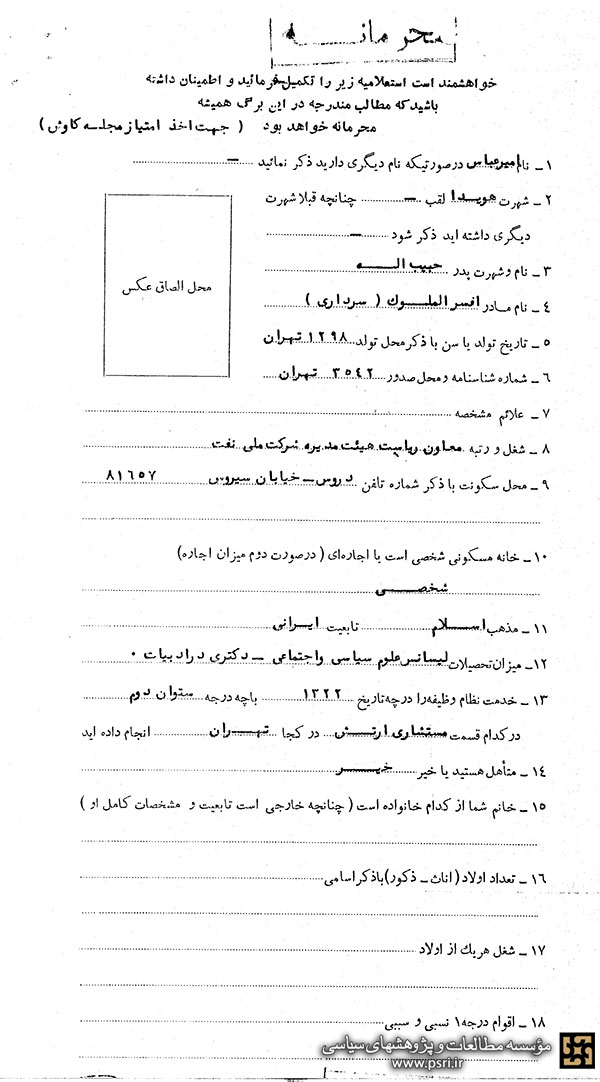 محرمانه
خواهشمند است استعلامیه زیر را تکمیل فرمائید و اطمینان داشته
باشید که مطالب مندرجه در این برگ همیشه
محرمانه خواهد بود ( جهت اخذ امتیاز مجله کاوش )
۱ ـ نام امیرعباس در صورتیکه نام دیگری دارید ذکر نمائید ـ
۲ ـ شهرت هویدا لقب ـ چنانچه قبلا شهرت
دیگری داشته اید ذکر شود ـ
۳ ـ نام و شهرت پدر حبیب اله
۴ ـ نام مادر افسر الملوک ( سرداری )
محل الصاق عکس
۵ ـ تاریخ تولد یا سن با ذکر محل تولد ۱۲۹۸ تهران
۶ ـ شماره شناسنامه و محل صدور ۳۵۴۲ تهران
۷ ـ علائم مشخصه
۸ ـ شغل و رتبه معاون ریاست هیئت مدیره شرکت ملی نفت
۹ ـ محل سکونت با ذکر شماره تلفن دروس ـ خیابان سیروس ۸۱۶۵۷
۱۰ ـ خانه مسکونی شخصی است یا اجاره‌ای ( در صورت دوم میزان اجاره)
شخصی
۱۱ ـ مذهب اسلام تابعیت ایرانی
۱۲ ـ میزان تحصیلات لیسانس علوم سیاسی واجتماعی ـ دکتری در ادبیات ۰
۱۳ ـ خدمت نظام وظیفه را در چه تاریخ ۱۳۲۲ با چه درجه ستوان دوم
در کدام قسمت مستشاری ارتش در کجا تهران انجام داده اید
۱۴ ـ متأهل هستید یا خیر خیر
۱۵ ـ خانم شما از کدام خانواده است ( چنانچه خارجی است تابعیت و مشخصات کامل او )
۱۶ ـ تعداد اولاد ( اناث ـ ذکور) با ذکر اسامی
۱۷ ـ شغل هریک از اولاد
۱۸ ـ اقوام درجه ۱ نسبی و سببی
مؤسسه مطالعات و پژوهشهای سیاسی
www.psri.ir